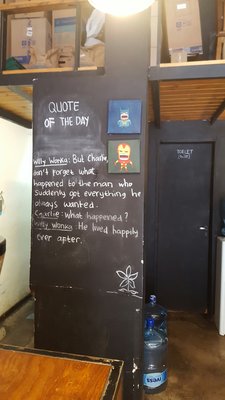 QUOTE
OF THE DAY
Willy Wonka: But Charlie,
don't forget what
happened to the man who
suddenly got everything he
always wanted.
Charlie: What happened?
Willy Wonka: He lived happily
ever after.
TOILET